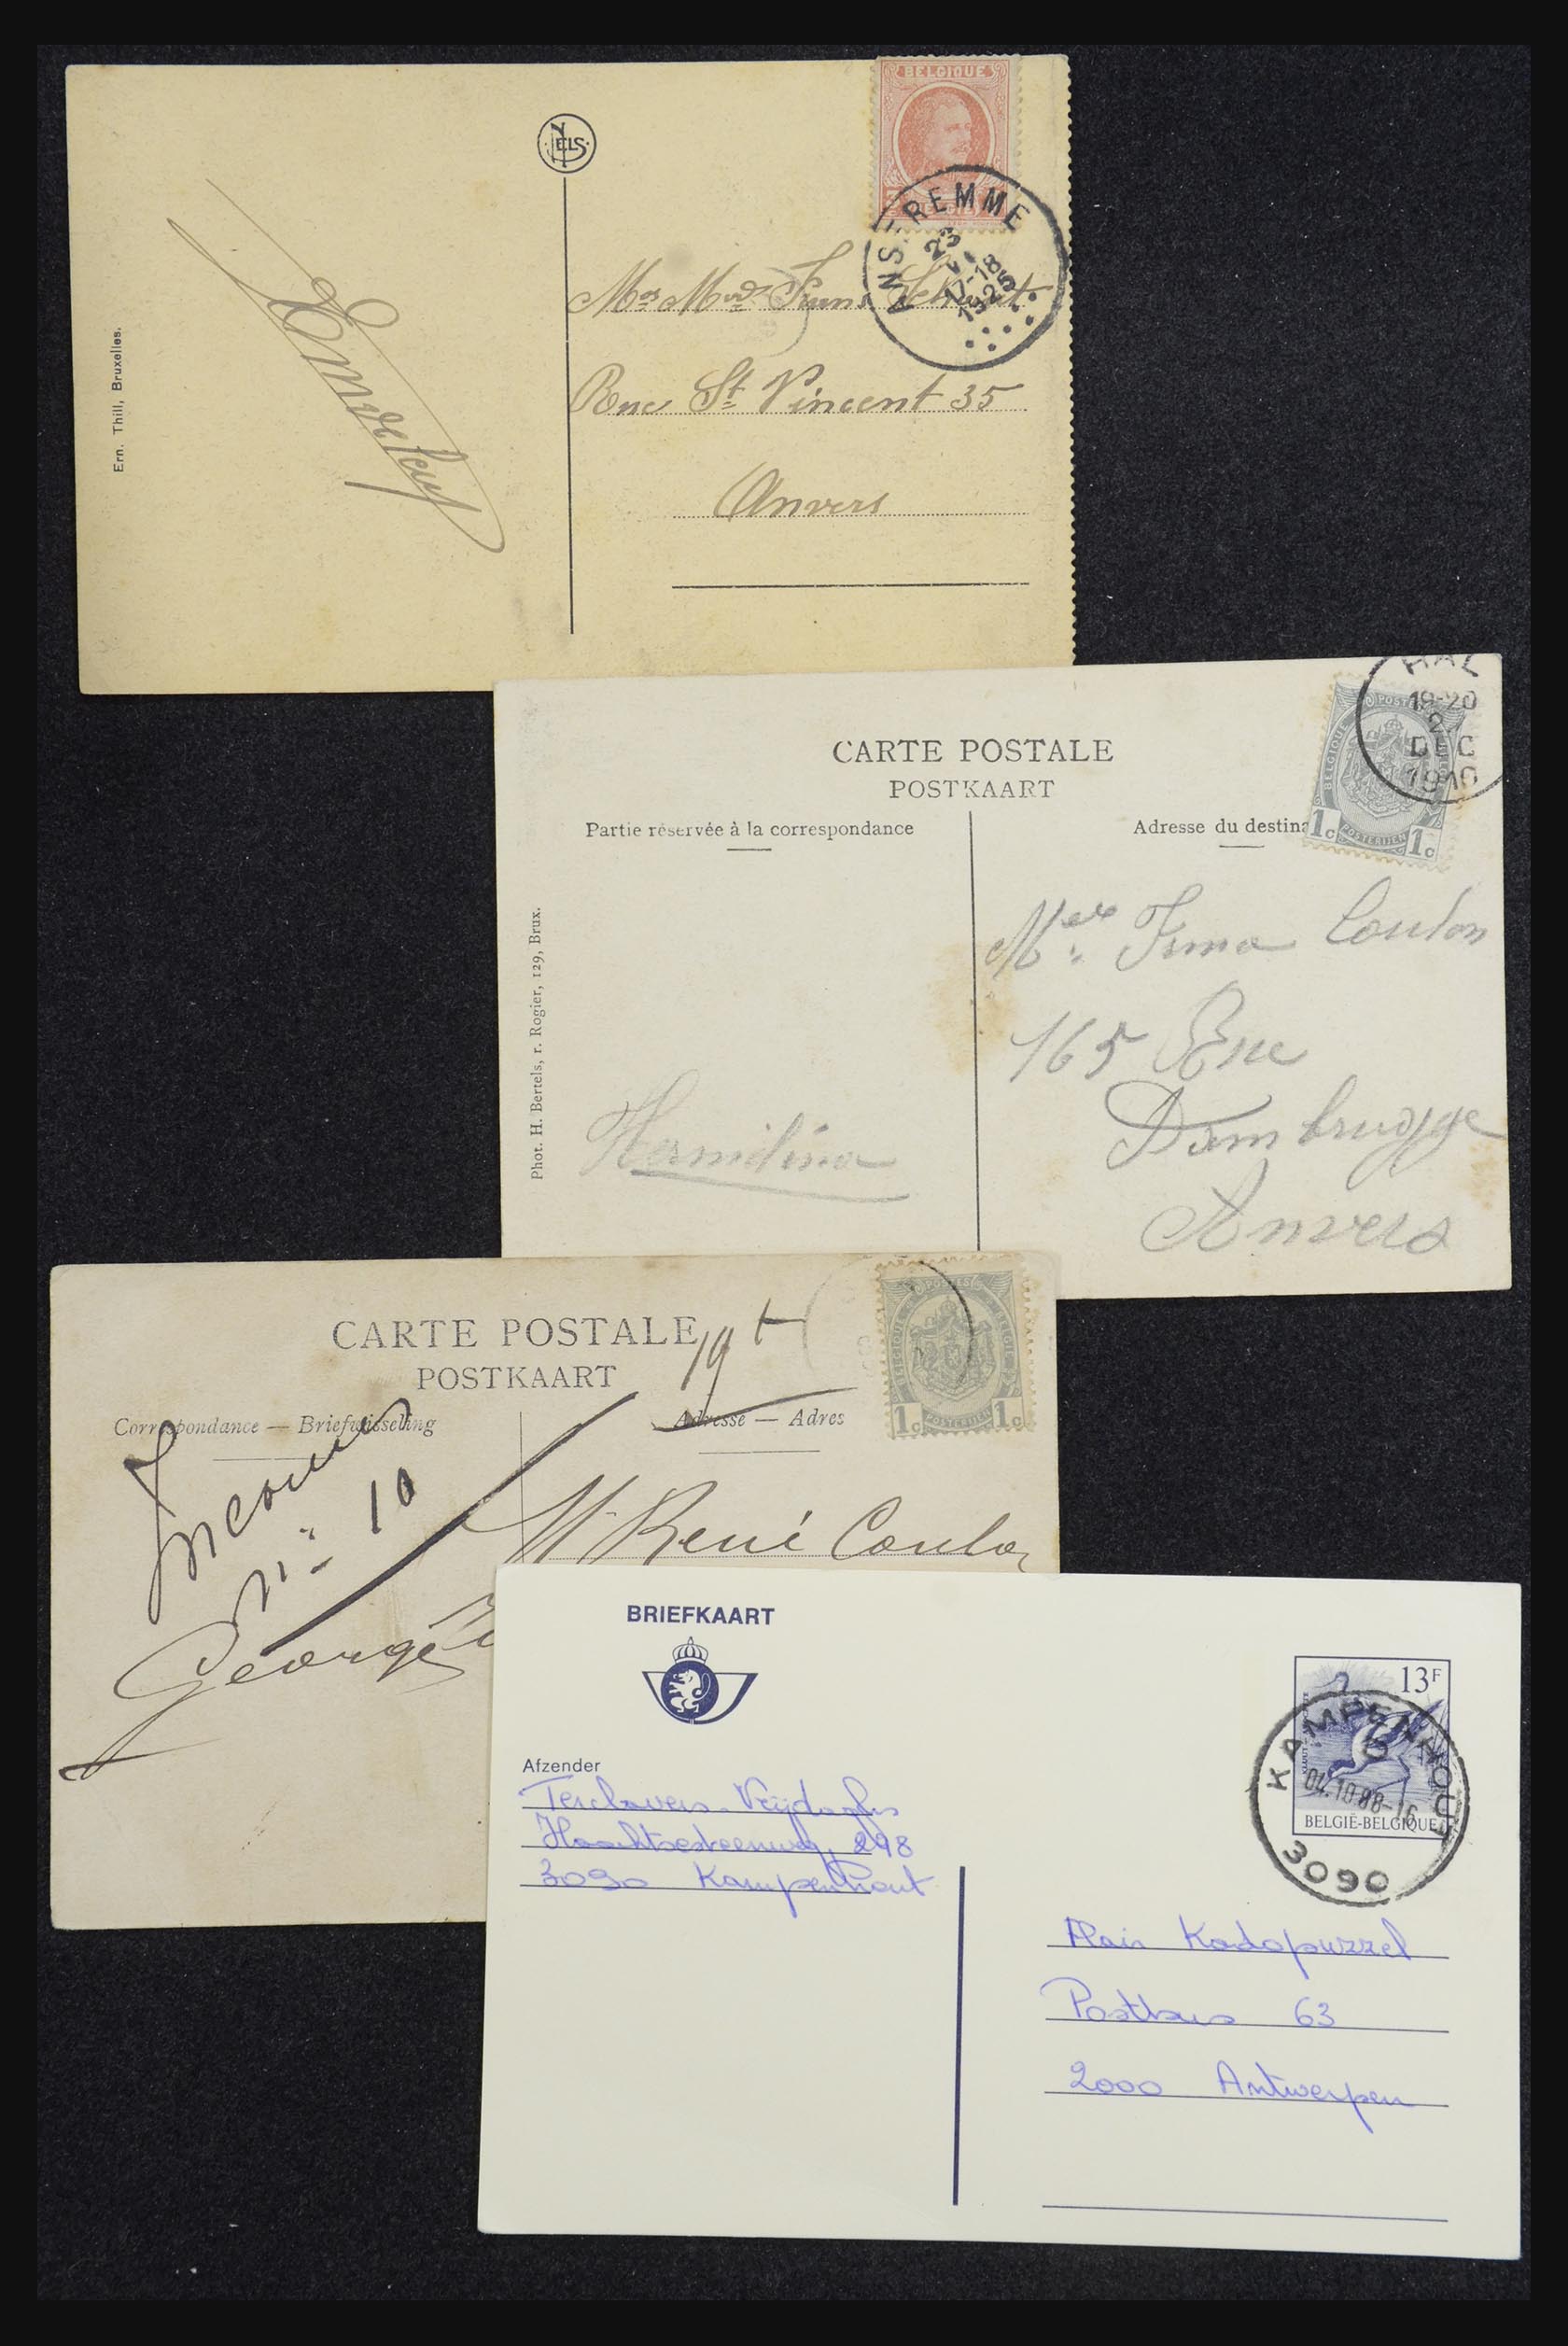 BELGIQUE
NELS
ANSEREMME
23
VI
17-18
1925
Rue St Vincent 35
Anvers
Ern. Thill, Bruxelles.
HAL
19-20
DEC
1910
CARTE POSTALE
POSTKAART
Partie réservée à la correspondance
Adresse du destina
POSTERIJEN
1c 1c
Irma Coulon
165 Rue
Dambrugge
Anvers
Hermilina
Phot. H. Bertels, r. Rogier, 129, Brux.
CARTE POSTALE
POSTKAART
Correspondance — Briefwisseling
Adresse — Adres
POSTES
BELGIQUE BELGIE
POSTERIJEN
1c 1c
19
10
Mr René Coulon
George
BRIEFKAART
13F
KAMPENHOUT
04.10.88-16
BELGIË-BELGIQUE
3090
Afzender
Haachtsesteenweg, 298
3090 Kampenhout
Alain Kadopuzzel
Postbus 63
2000 Antwerpen